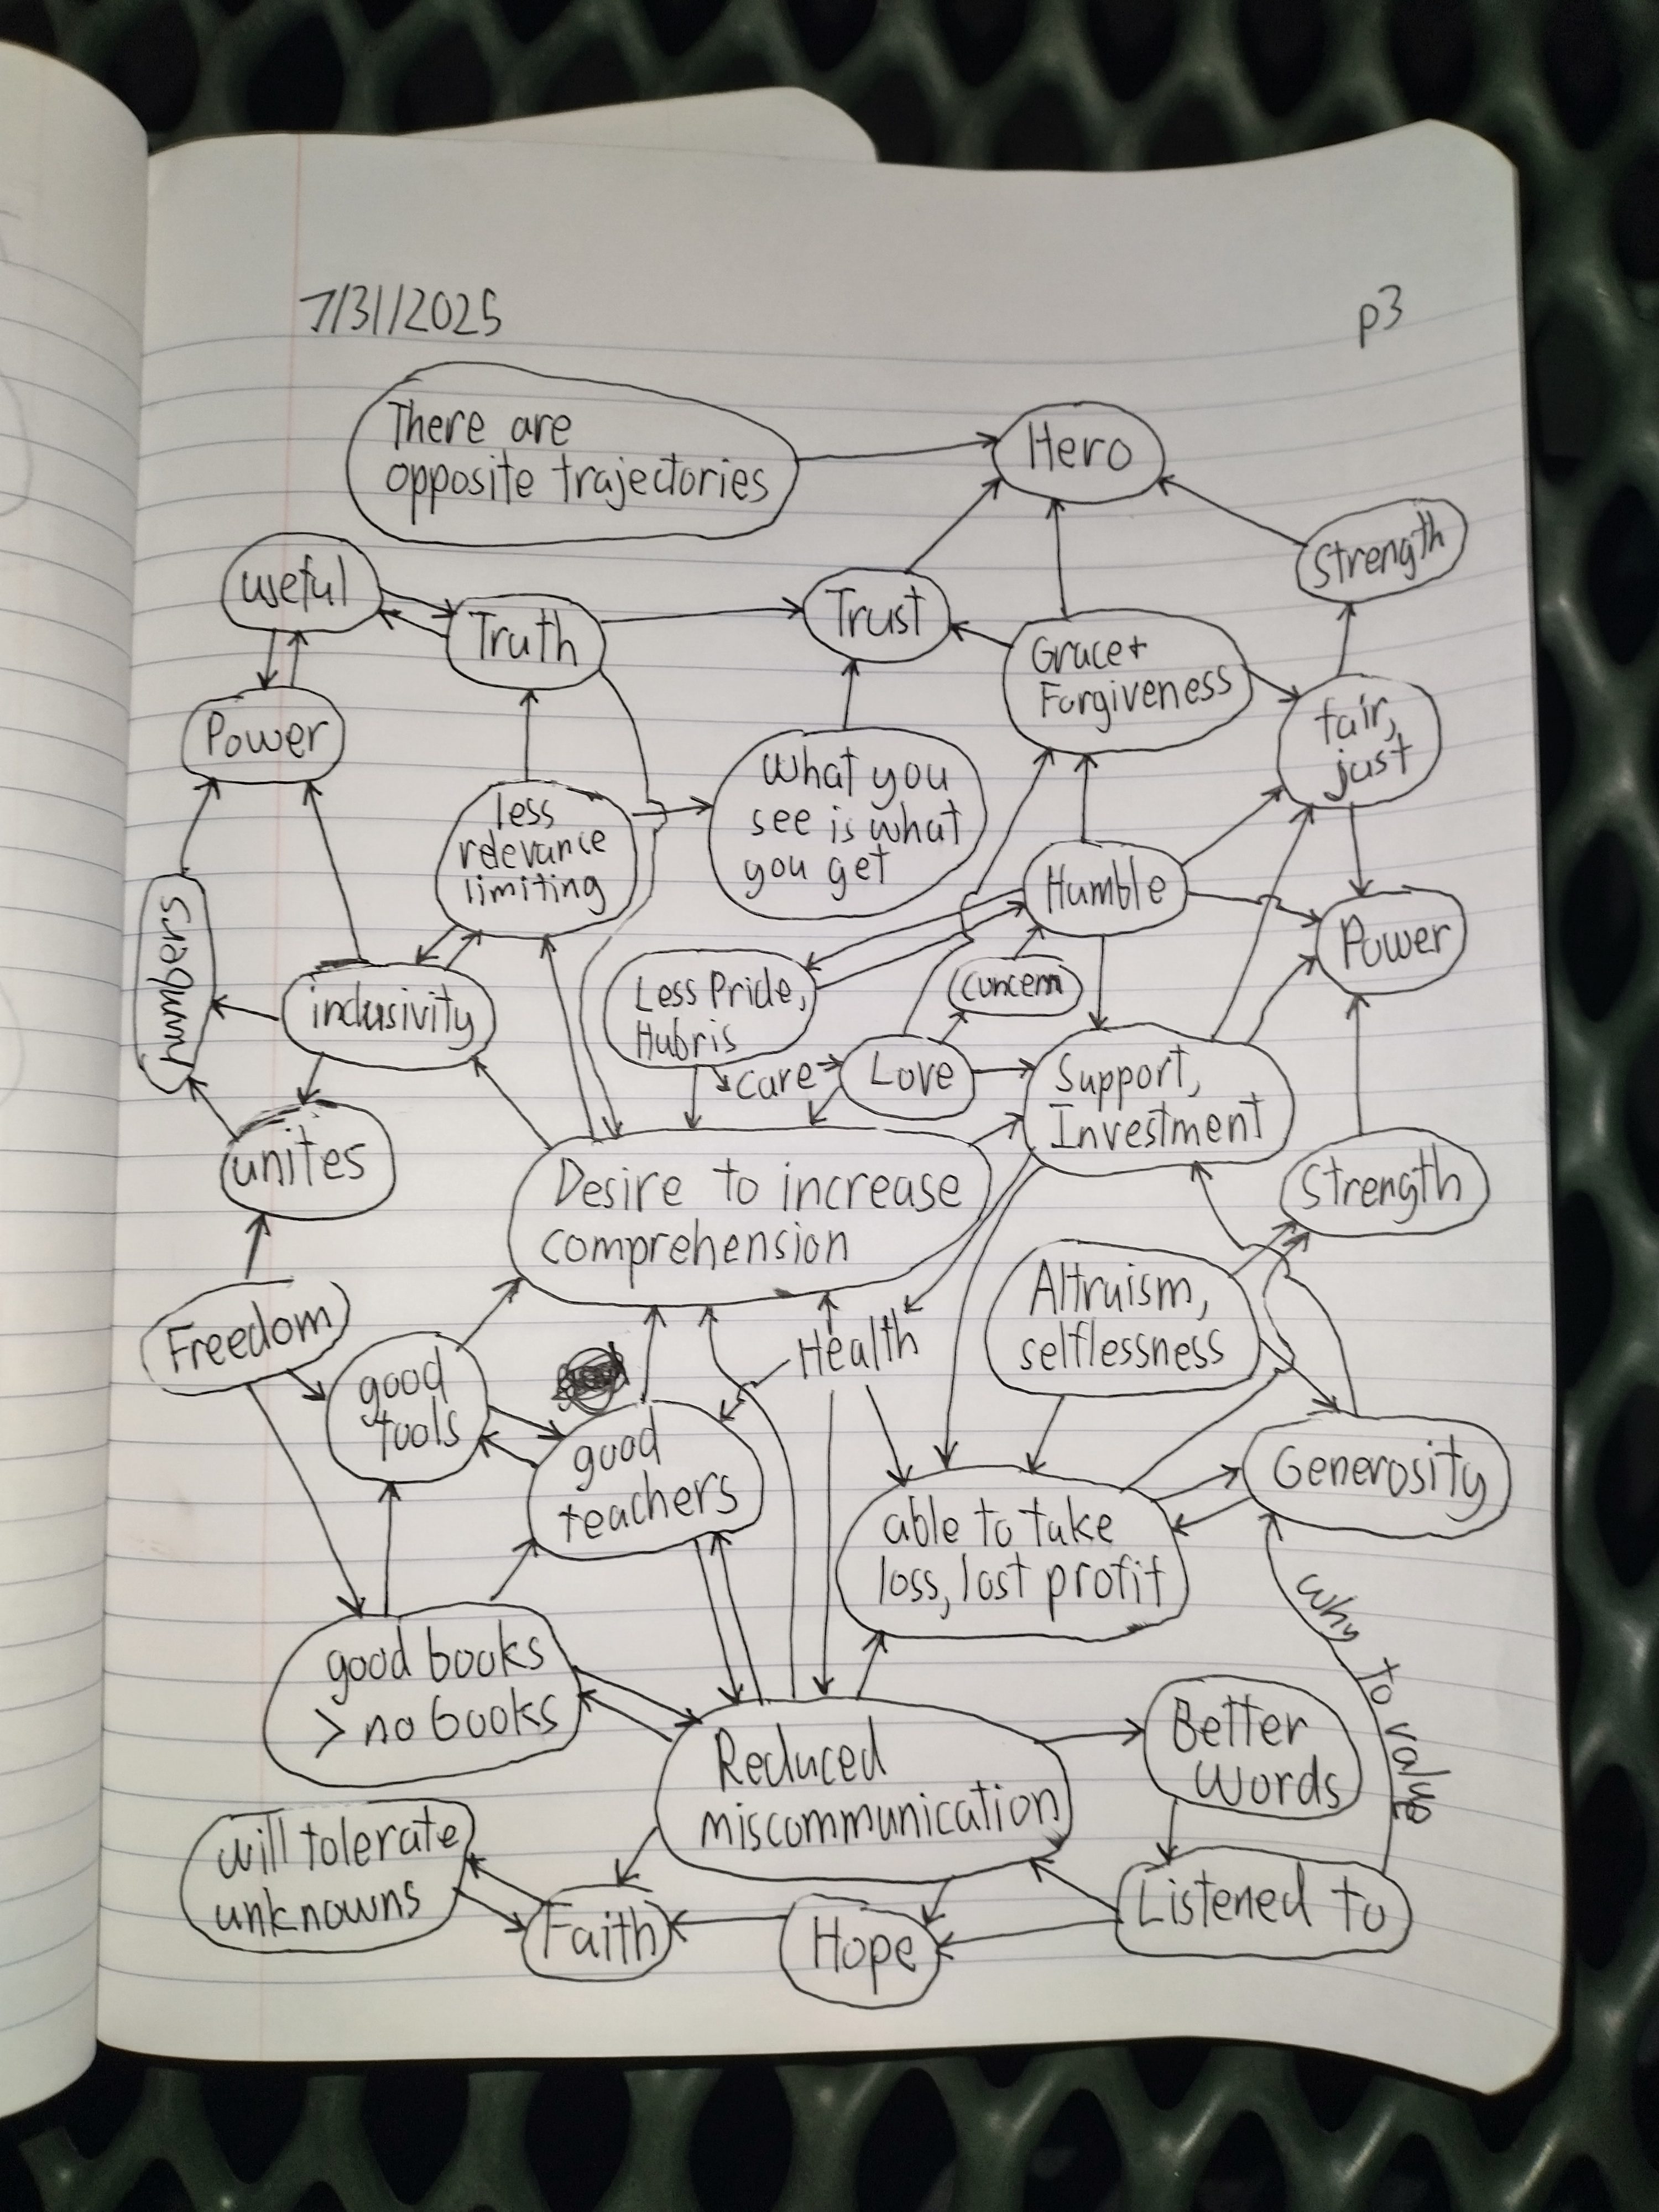 7/31/2025
p3
There are
opposite trajectories
Hero
Strength
useful
Truth
Trust
Grace +
Forgiveness
fair,
just
Power
less
relevance
limiting
What you
see is what
you get
Humble
Power
numbers
inclusivity
Less Pride,
Hubris
concern
care
Love
Support,
Investment
unites
Desire to increase
comprehension
Strength
Freedom
good
tools
Health
Altruism,
selflessness
good
teachers
able to take
loss, lost profit
Generosity
why to value
good books
> no books
Reduced
miscommunication
Better
Words
will tolerate
unknowns
Faith
Hope
Listened to